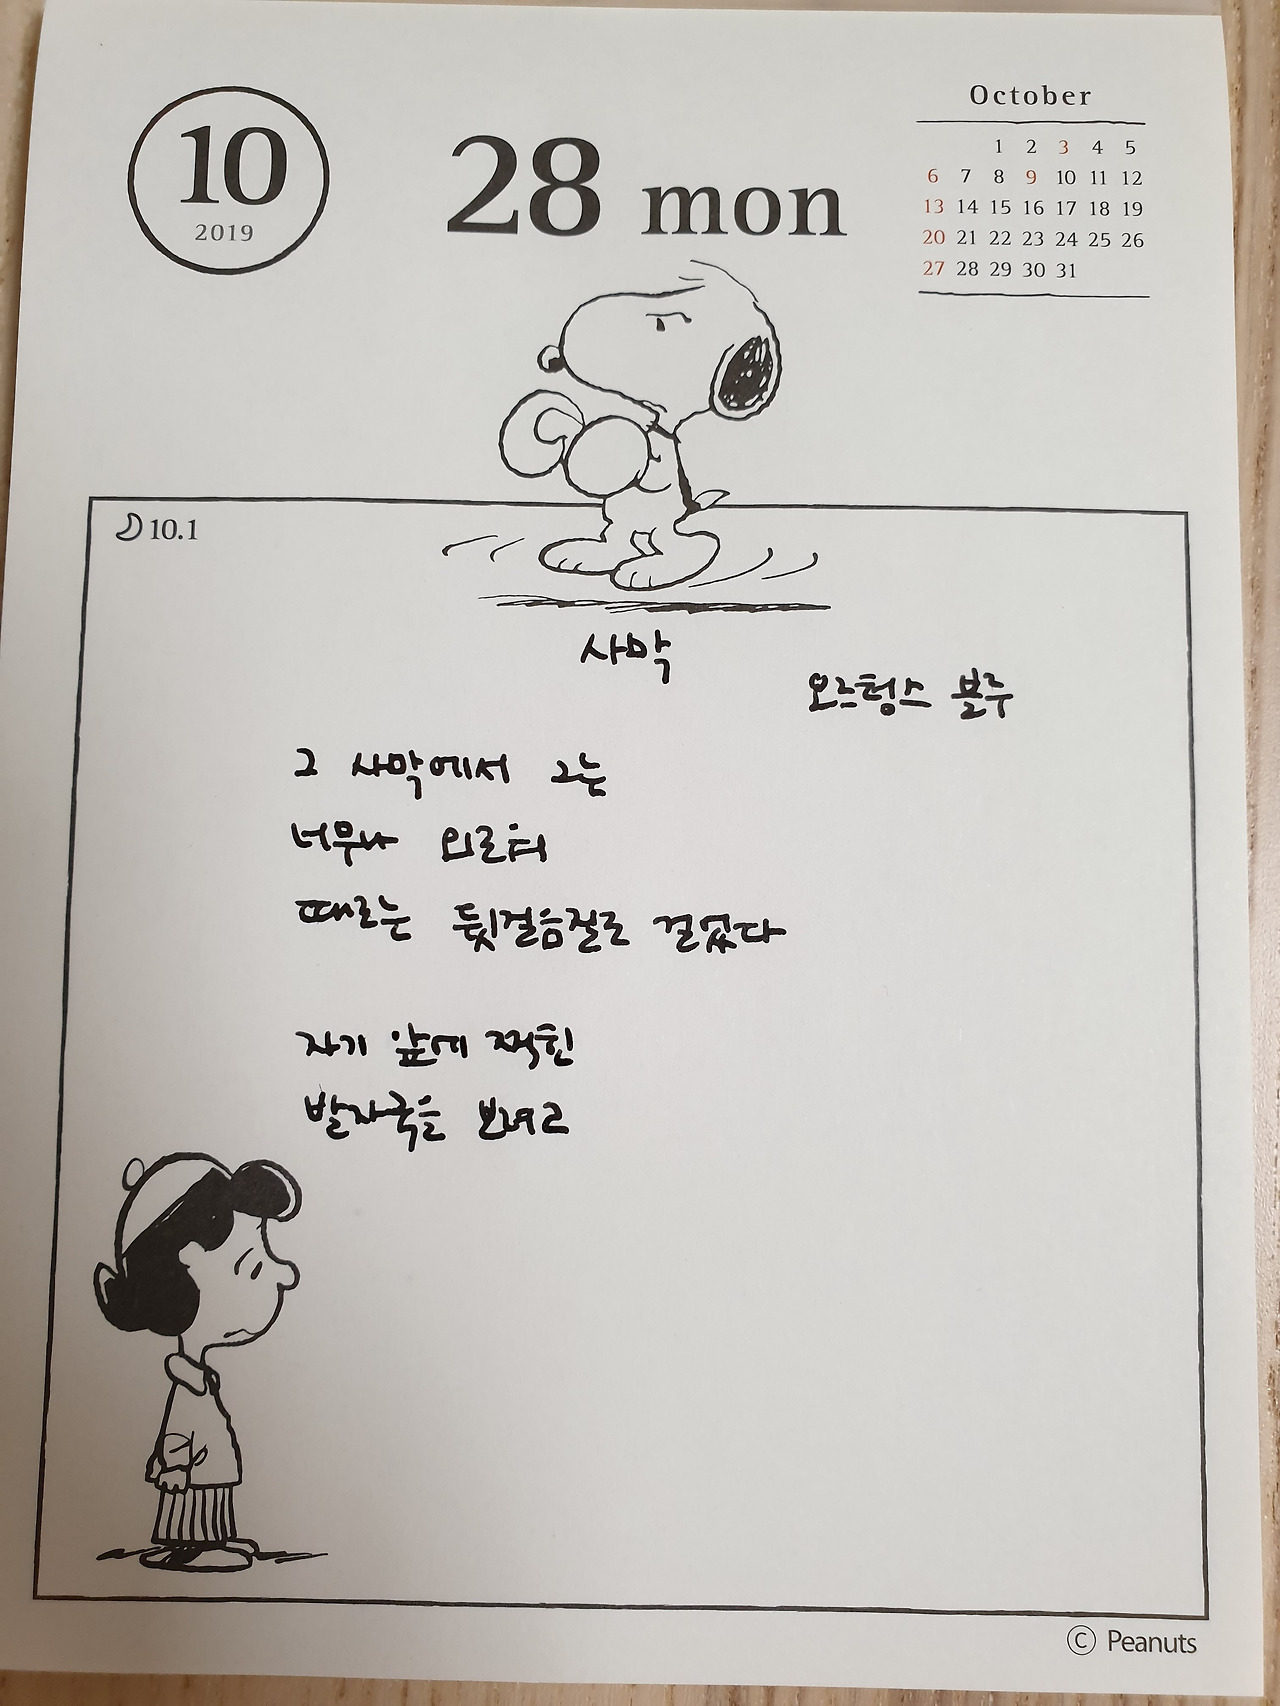 10
2019
28 mon
October
1 2 3 4 5
6 7 8 9 10 11 12
13 14 15 16 17 18 19
20 21 22 23 24 25 26
27 28 29 30 31
10.1
사막
오르텅스 블루
그 사막에서 그는
너무나 외로워
때로는 뒷걸음질로 걸었다
자기 앞에 찍힌
발자국을 보려고
© Peanuts